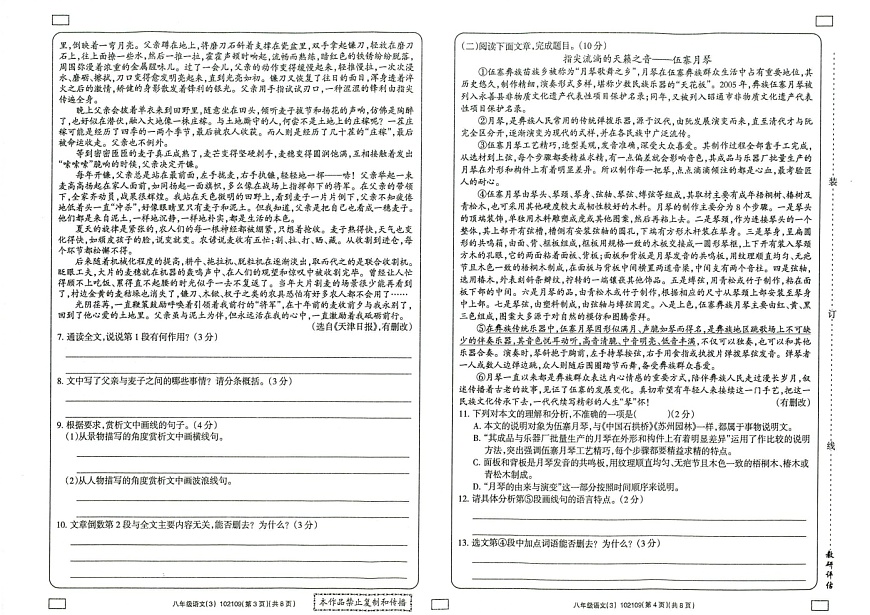 里，倒映着一弯月亮。父亲蹲在地上，将磨刀石斜着支撑在瓷盆里，双手拿起镰刀，轻放在磨刀
石上，往上面撩一些水，然后一推一拉，霍霍声顿时响起，流畅而熟练，暗红色的铁锈纷纷脱落，
周围弥漫着浓重的金属腥味儿。过了一会儿，父亲的动作变得缓慢起来，轻推慢拉，一次次浸
水、磨砺、擦拭，刀口变得愈发明亮起来，直到光亮如初。镰刀又恢复了往日的面目，浑身透着淬
火之后的激情，矫健的身形散发着锋利的银光。父亲用手指试试刃口，一种混混的锋利由指尖
传遍全身。
晚上父亲会披着羊衣来到田野里，随意坐在田头，倾听麦子拔节和扬花的声响，仿佛是陶醉
了，也好似在潜伏，融入大地像一株庄稼。与土地厮守的人，何尝不是土地上的庄稼呢？一茬庄
稼可能是经历了四季的一两个季节，最后被农人收获。而人则是经历了几十茬的“庄稼”，最后
被命运收走。父亲也不例外。
等到密密匝匝的麦子真正成熟了，麦芒变得坚硬刺手，麦穗变得圆润饱满，互相接触着发出
“嗦嗦嗦”脆响的时候，父亲决定开镰。
每年开镰，父亲总是站在最前面，左手拢麦，右手执镰，轻轻地一样——咕！父亲举起一束
麦高高扬起在家人面前，如同扬起一面旗帜，多么像在战场上指挥部下的将军。在父亲的带领
下，全家齐动员，战果很辉煌。我站在天色微明的田野上，看到麦子一片片倒下，父亲不知疲倦
地低着头一直“冲杀”，好像眼睛里只有麦子和泥土。但我知道，父亲是把自己也看成一穗麦子。
他们都是来自泥土，一样地沉静，一样地朴实，都是生活的本色。
夏天的旋律是紧张的，农人们的每一根神经都被绷紧，只想着抢收。麦子熟得快，天气也变
化得快，如顽皮孩子的脸，说变就变。农谚说麦收有五忙：割、拉、打、晒、藏。从收割到进仓，每
个环节都松懈不得。
后来随着机械化程度的提高，耕牛、拖拉机、脱粒机在逐渐淡出，取而代之的是联合收割机。
眨眼工夫，大片的麦穗就在机器的轰鸣声中、在人们的观望和惊叹中被收割完毕。曾经让人忙
得顾不上吃饭、累得直不起腰的时光似乎一去不复返了。当年大片割麦的场景很少能再看到
了，村边金黄的麦秸垛也消失了，镰刀、木锨、杈子之类的农具恐怕有好多人都不会用了……
光阴荏苒，一直鞭策鼓励呼唤着引领着我前行的“将军”，在十年前的麦收前夕与我永别了，
回到了他心爱的土地里。父亲虽与泥土为伴，但永远活在我的心中，一直激励着我砥砺前行。
（选自《天津日报》，有删改）
7. 通读全文，说说第1段有何作用？（3分）
8. 文中写了父亲与麦子之间的哪些事情？请分条概括。（3分）
9. 根据要求，赏析文中画线的句子。（4分）
(1)从景物描写的角度赏析文中画横线句。
(2)从人物描写的角度赏析文中画波浪线句。
10. 文章倒数第2段与全文主要内容无关，能否删去？为什么？（3分）
八年级语文(3) 102109(第3页)(共8页)
本作品禁止复制和传播
（二）阅读下面文章，完成题目。（10分）
指尖流淌的天籁之音——伍寨月琴
①伍寨彝族苗族乡被称为“月琴歌舞之乡”，月琴在伍寨彝族群众生活中占有重要地位，其
历史悠久，制作精细，演奏形式多样，堪称少数民族乐器的“天花板”。2005年，彝族伍寨月琴被
列入永善县非物质文化遗产代表性项目保护名录；同年，又被列入昭通市非物质文化遗产代表
性项目保护名录。
②月琴，是彝族人民常用的传统弹拨乐器，源于汉代，由阮发展演变而来，直至清代才与阮
完全区分开，逐渐演变为现代的式样，并在各民族中广泛流传。
③伍寨月琴工艺精巧，造型美观，发音准确，深受大众喜爱。其制作过程全都靠手工完成，
从选材到上弦，每个步骤都要精益求精，有一点偏差就会影响音色，其成品与乐器厂批量生产的
月琴在外形和构件上有着明显差异。所以制作每一把琴，点点滴滴倾注的都是心血，最考验匠
人的耐心。
④伍寨月琴由琴头、琴颈、琴身、弦轴、琴弦、缚弦等组成，其取材主要有成年梧桐树、椿树及
青松木，也可采用其他硬度较大或韧性较好的木料。月琴的制作主要分为8个步骤。一是琴头
的顶端装饰，单独用木料雕塑成龙或其他图案，然后再粘上去。二是琴颈，作为连接琴头的一个
整体，其上部开有弦槽，槽侧有安装弦轴的圆孔，下端有方形木杆装在琴身。三是琴身，呈扁圆
形的共鸣箱，由面、背、框板组成，框板用规格一致的木板交接成一圆形琴框，上下开有装入琴颈
方木的孔眼，它的两面粘着面板、背板；面板和背板是月琴发音的共鸣板，用纹理顺直均匀、无疤
节且木色一致的梧桐木制成，在面板与背板中间横置两道音梁，中间支有两个音柱。四是弦轴，
选用椿木，外表刻斜条瓣纹，拧转的一端镶嵌其他饰品。五是缚弦，用青松或竹子制作，粘在面
板下部的中间。六是月琴的品，由青松木或竹子制作，根据相应的尺寸从琴颈上部安装至琴身
中上部。七是琴弦，由塑料制成，由弦轴与缚弦固定。八是上色，伍寨彝族月琴主要由红、黄、黑
三色组成，图案大多源于对自然的模仿和图腾崇拜。
⑤在彝族传统乐器中，伍寨月琴因形似满月、声脆如琴而得名，是彝族地区跳歌场上不可缺
少的伴奏乐器，其音色悦耳动听，高音清脆、中音明亮、低音丰满，不仅可以独奏，也可以和其他
乐器合奏。演奏时，琴斜抱于胸前，左手持琴按弦，右手用食指或执拨片弹拨琴弦发音。弹琴者
一人或数人边弹边跳，众人则后随围圈踏节而舞，备受彝族群众喜爱。
⑥月琴一直以来都是彝族群众表达内心情感的重要方式，陪伴彝族人民走过漫长岁月，叙
述传播着古老的故事，见证了伍寨的发展变化。真切希望有年轻人来接续这一门手艺，把这一
民族文化传承下去，一代代续写精彩的人生“琴”怀！
（有删改）
11. 下列对本文的理解和分析，不准确的一项是(　　)（2分）
A. 本文的说明对象为伍寨月琴，与《中国石拱桥》《苏州园林》一样，都属于事物说明文。
B. “其成品与乐器厂批量生产的月琴在外形和构件上有着明显差异”运用了作比较的说明
方法，突出强调伍寨月琴工艺精巧，每个步骤都要精益求精的特点。
C. 面板和背板是月琴发音的共鸣板，用纹理顺直均匀、无疤节且木色一致的梧桐木、椿木或
青松木制成。
D. “月琴的由来与演变”这一部分按照时间顺序来说明。
12. 请具体分析第⑤段画线句的语言特点。（2分）
13. 选文第④段中加点词语能否删去？为什么？（3分）
八年级语文(3) 102109(第4页)(共8页)
装
订
线
教研评估